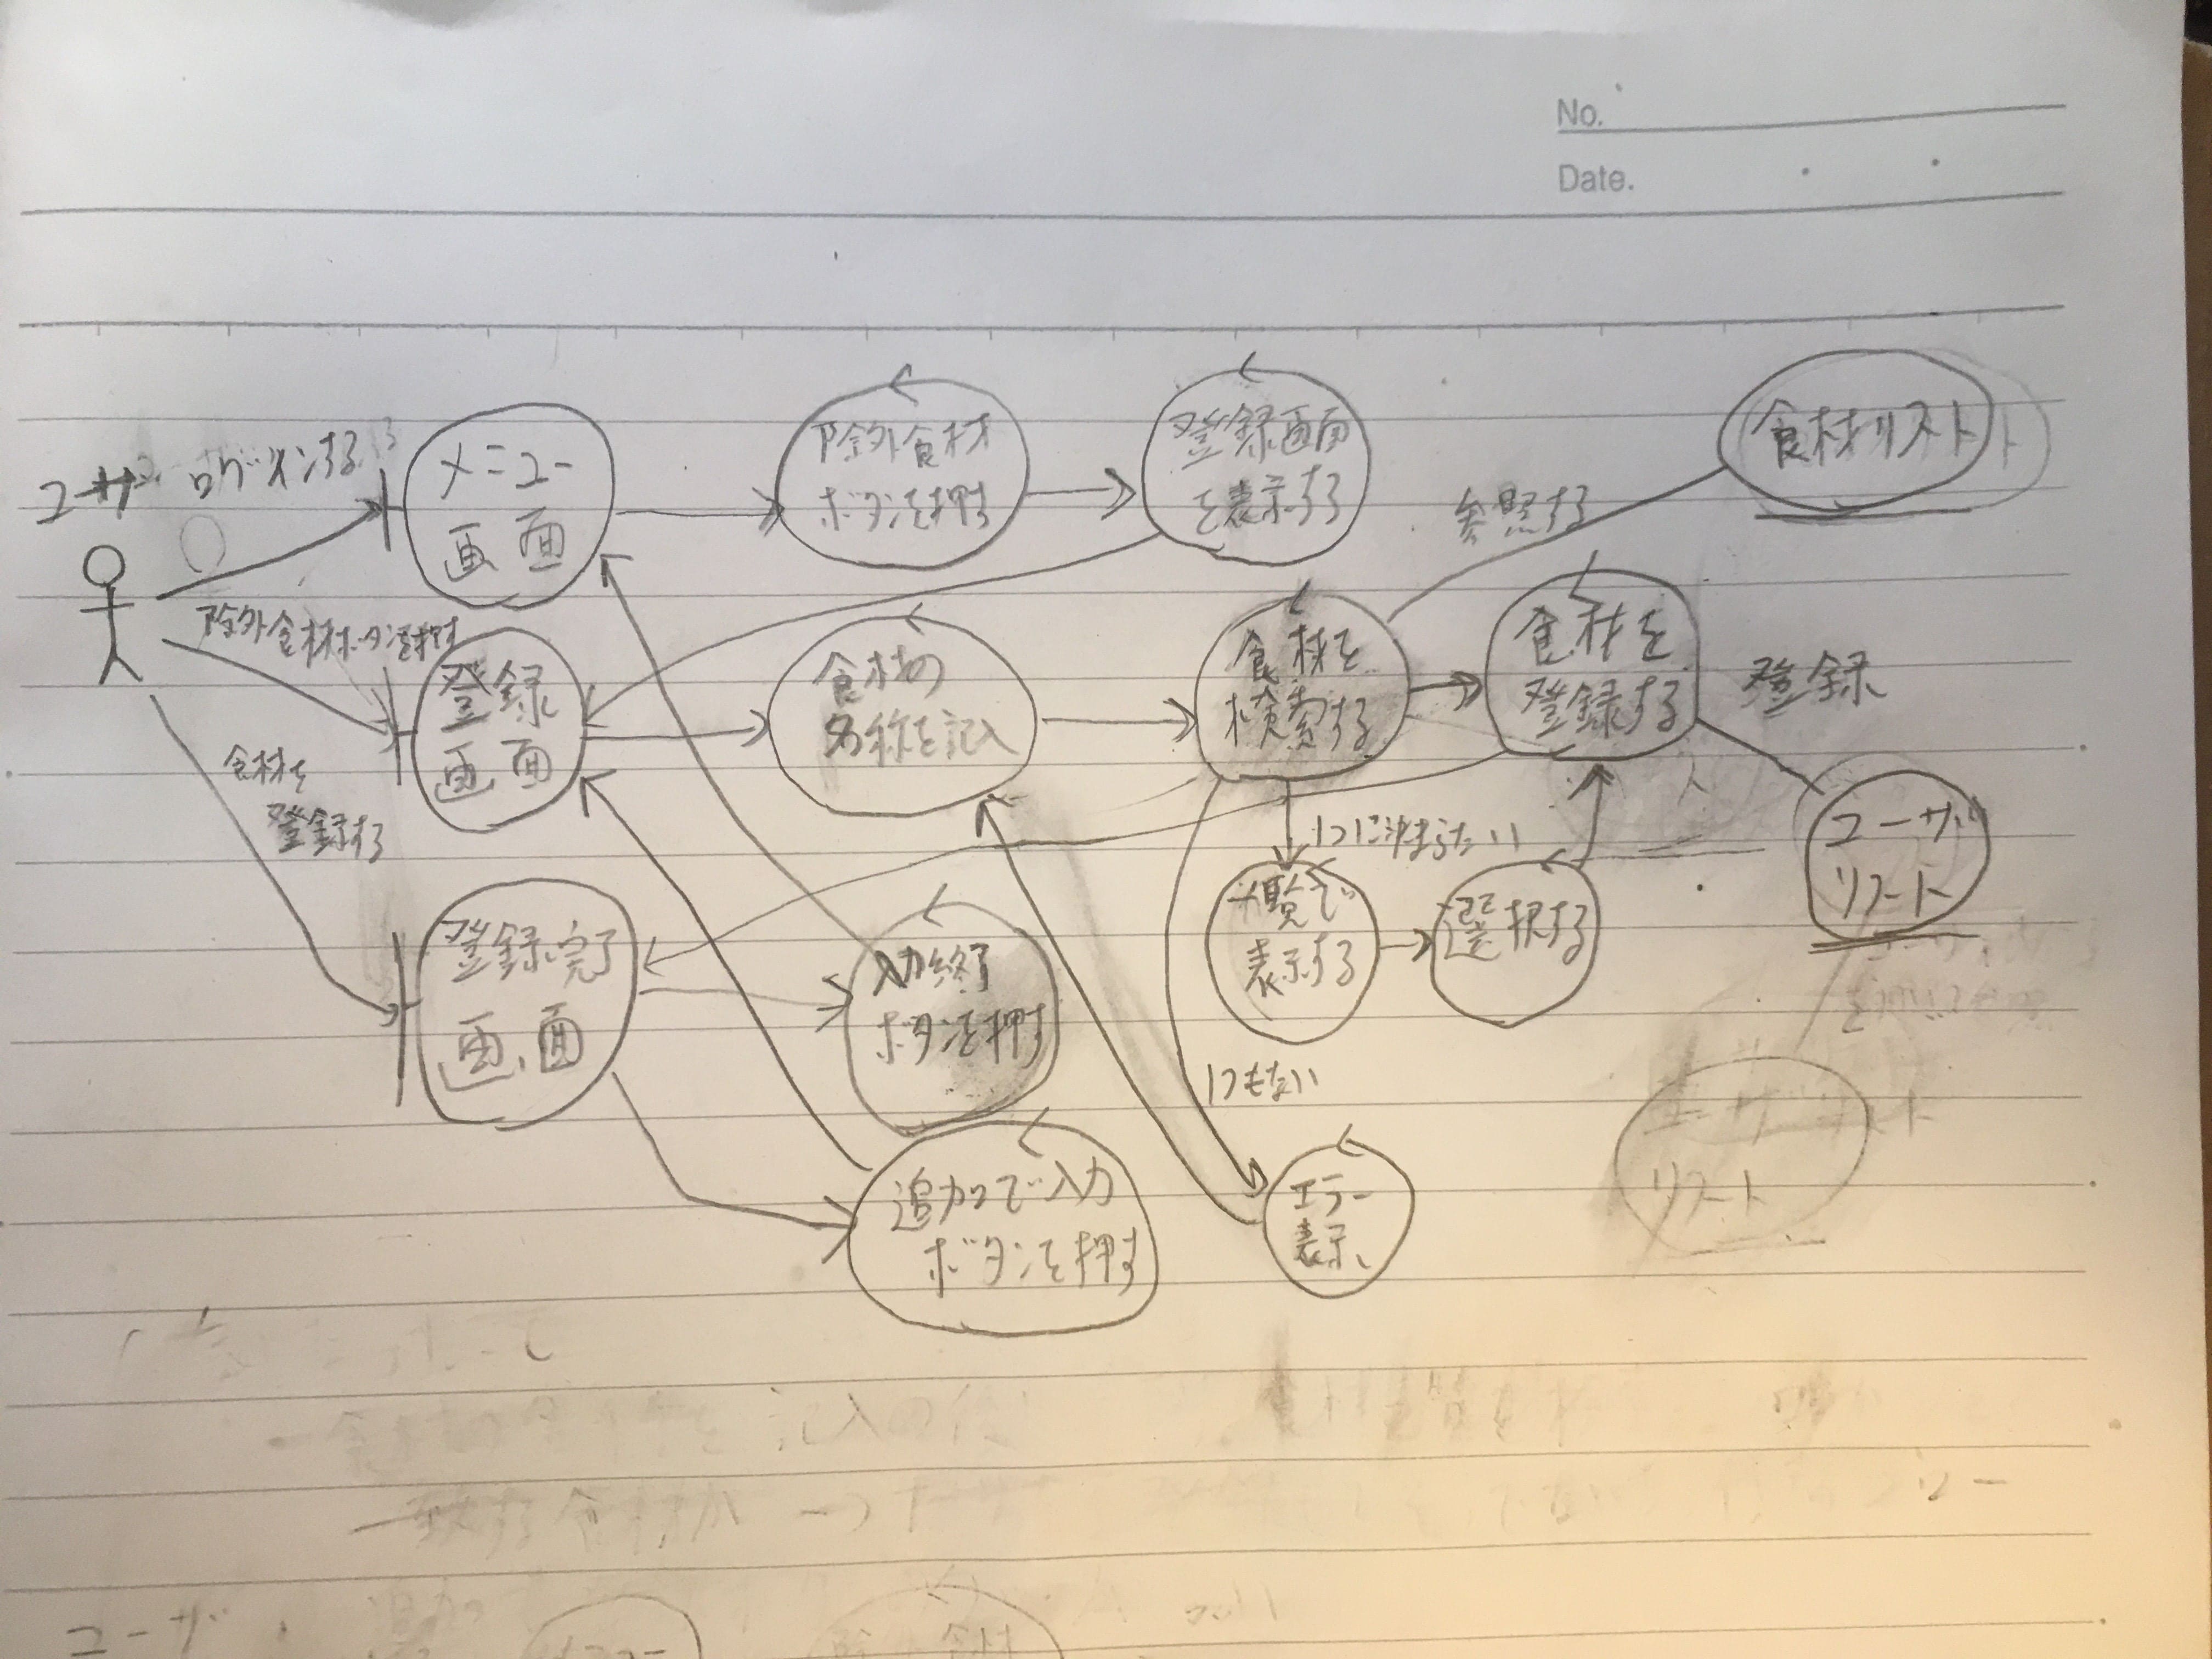 No.
Date.
ユーザ
ログインする
メニュー
画面
除外食材
ボタンを押す
登録画面
を表示する
食材リスト
参照する
除外食材ボタンを押す
登録
画面
食材の
名称を記入
食材を
検索する
食材を
登録する
登録
ユーザ
リスト
食材を
登録する
1つに決まらない
一覧で
表示する
選択する
登録完了
画面
入力終了
ボタンを押す
1つもない
追加で入力
ボタンを押す
エラー
表示
ユーザ